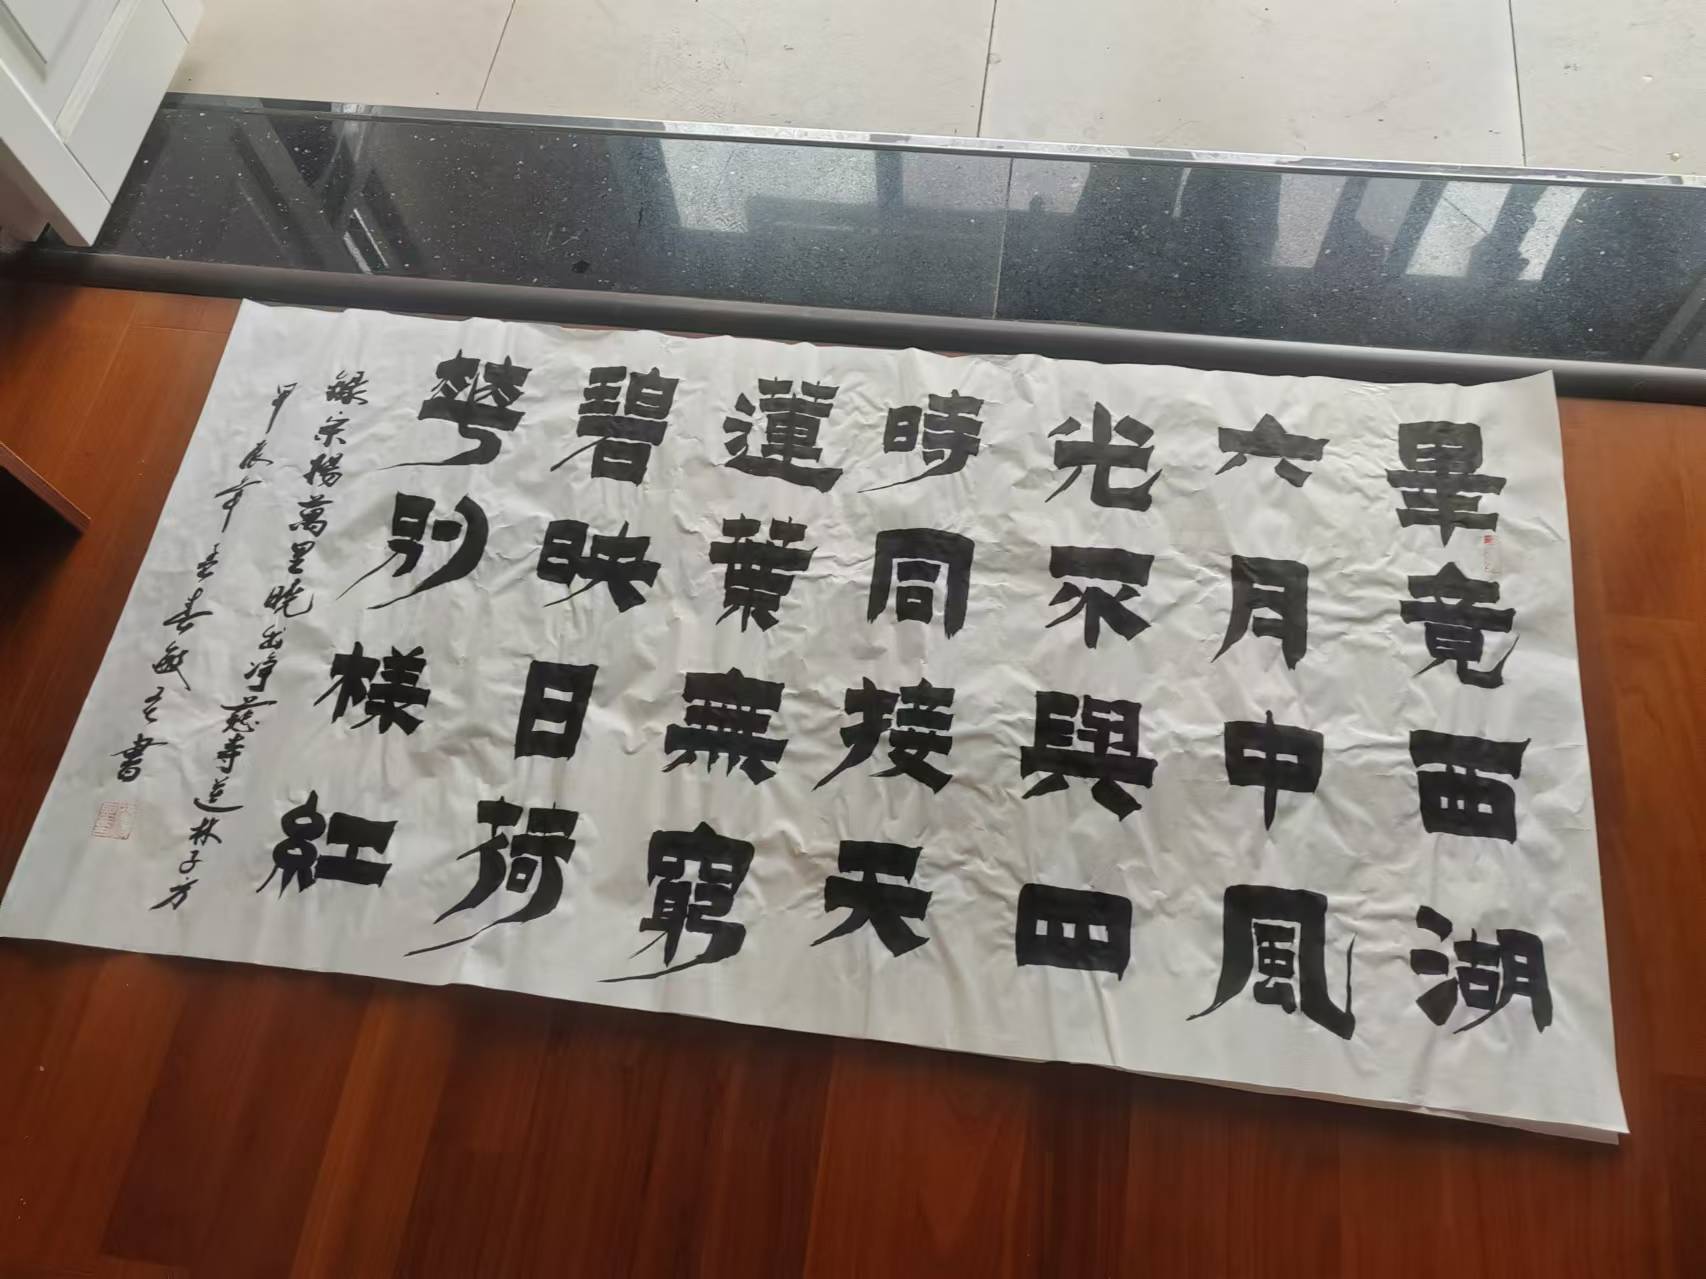 畢竟西湖
六月中風
光不與四
時同接天
蓮葉無窮
碧映日荷
華別樣紅
錄宋楊萬里曉出净慈寺送林子方
甲辰年孟春敏書